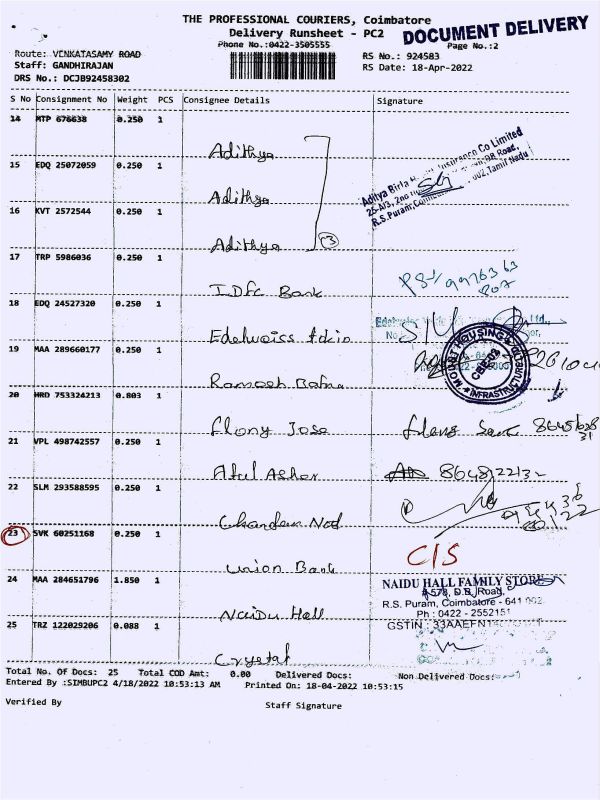 THE PROFESSIONAL COURIERS, Coimbatore
Delivery Runsheet - PC2
DOCUMENT DELIVERY
Phone No.:0422-3505555
Page No.:2
Route: VENKATASAMY ROAD
RS No.: 924583
Staff: GANDHIRAJAN
RS Date: 18-Apr-2022
DRS No.: DCJB92458302
S No Consignment No Weight PCS Consignee Details Signature
14 MTP 676638 0.250 1
Adithya
15 EDQ 25072059 0.250 1
Aditya Birla Insurance Co Limited
R.S.Puram, Tamil Nadu
Adithya
16 KVT 2572544 0.250 1
Adithya
3
17 TRP 5986036 0.250 1
IDFC Bank
18 EDQ 24527320 0.250 1
Edelweiss
19 MAA 289660177 0.250 1
MOUNT HOUSING
INFRASTRUCTURE
Ramesh
20 HRD 753324213 0.803 1
Jose
21 VPL 498742557 0.250 1
Atul Asher
22 SLM 293588595 0.250 1
23 SVK 60251168 0.250 1
C/S
Union Bank
24 MAA 284651796 1.850 1
NAIDU HALL FAMILY STORE
# 578, D.B. Road,
R.S. Puram, Coimbatore - 641 002.
Ph : 0422 - 2552151
Naidu Hall
25 TRZ 122029206 0.088 1
GSTIN : 33AAEFN
Crystal
Total No. Of Docs: 25 Total COD Amt: 0.00 Delivered Docs: Non Delivered Docs:
Entered By :SIMBUPC2 4/18/2022 10:53:13 AM Printed On: 18-04-2022 10:53:15
Verified By
Staff Signature